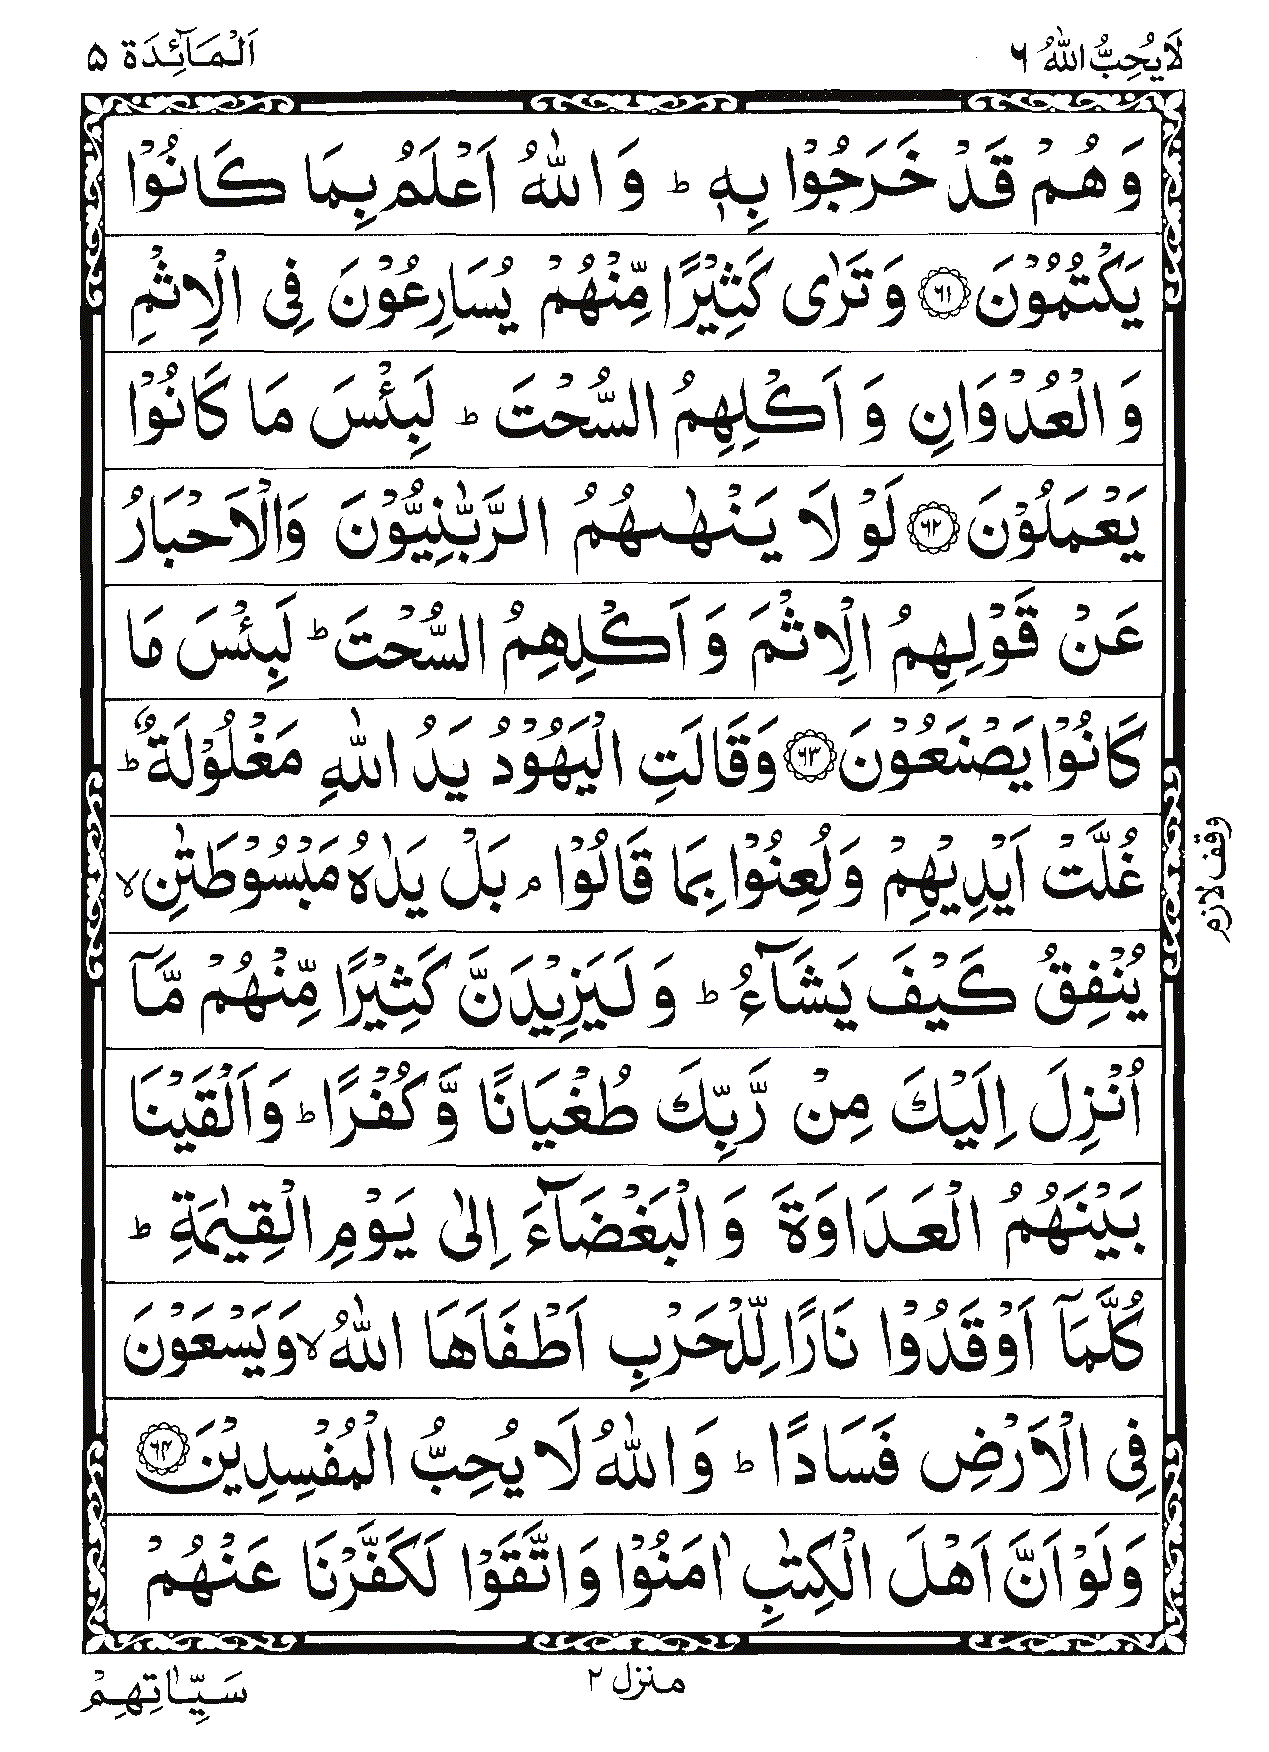 لَا يُحِبُّ اللّٰهُ ٦
اَلْمَآئِدَة ۵
وَ هُمْ قَدْ خَرَجُوْا بِهٖ ؕ وَ اللّٰهُ اَعْلَمُ بِمَا كَانُوْا
يَكْتُمُوْنَ ﴿٦١﴾ وَ تَرٰى كَثِيْرًا مِّنْهُمْ يُسَارِعُوْنَ فِى الْاِثْمِ
وَ الْعُدْوَانِ وَ اَكْلِهِمُ السُّحْتَ ؕ لَبِئْسَ مَا كَانُوْا
يَعْمَلُوْنَ ﴿٦٢﴾ لَوْ لَا يَنْهٰىهُمُ الرَّبّٰنِيُّوْنَ وَالْاَحْبَارُ
عَنْ قَوْلِهِمُ الْاِثْمَ وَ اَكْلِهِمُ السُّحْتَ ؕ لَبِئْسَ مَا
كَانُوْا يَصْنَعُوْنَ ﴿٦٣﴾ وَقَالَتِ الْيَهُوْدُ يَدُ اللّٰهِ مَغْلُوْلَةٌ ؕ
غُلَّتْ اَيْدِيْهِمْ وَ لُعِنُوْا بِمَا قَالُوْا ۘ بَلْ يَدٰهُ مَبْسُوْطَتٰنِ ۙ
وقف لازم
يُنْفِقُ كَيْفَ يَشَآءُ ؕ وَ لَيَزِيْدَنَّ كَثِيْرًا مِّنْهُمْ مَّاۤ
اُنْزِلَ اِلَيْكَ مِنْ رَّبِّكَ طُغْيَانًا وَّ كُفْرًا ؕ وَ اَلْقَيْنَا
بَيْنَهُمُ الْعَدَاوَةَ وَ الْبَغْضَآءَ اِلٰى يَوْمِ الْقِيٰمَةِ ؕ
كُلَّمَاۤ اَوْقَدُوْا نَارًا لِّلْحَرْبِ اَطْفَاَهَا اللّٰهُ ۙ وَ يَسْعَوْنَ
فِى الْاَرْضِ فَسَادًا ؕ وَ اللّٰهُ لَا يُحِبُّ الْمُفْسِدِيْنَ ﴿٦٤﴾
وَلَوْ اَنَّ اَهْلَ الْكِتٰبِ اٰمَنُوْا وَ اتَّقَوْا لَكَفَّرْنَا عَنْهُمْ
منزل ٢
سَيِّاٰتِهِمْ